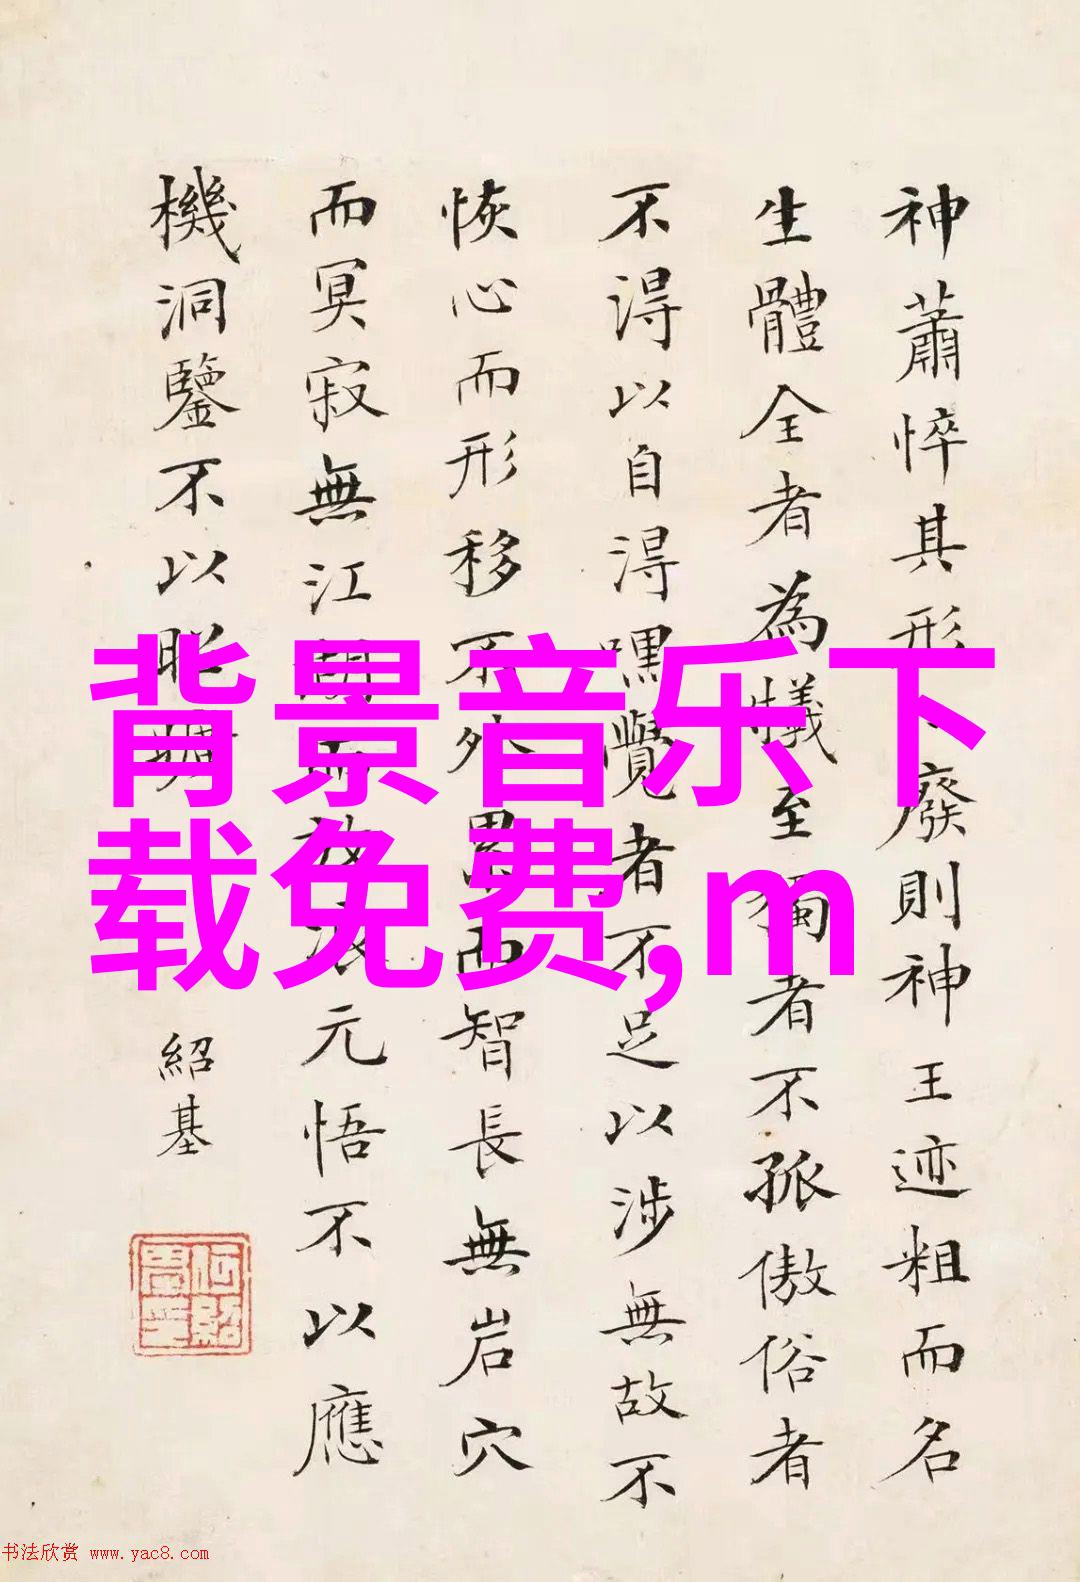 神蕭悴其形廢則神王迹粗而名
生體全者為犧至獨者不孤傲俗者
不得以自得嘿覺者不足以涉無故不
恢心而形移不外累而智長無岩穴
而冥寂無江湖而放浪元悟不以應
機洞鑒不以昭
紹基
背景音乐下
载免费,m
书法欣赏 www.yac8.com